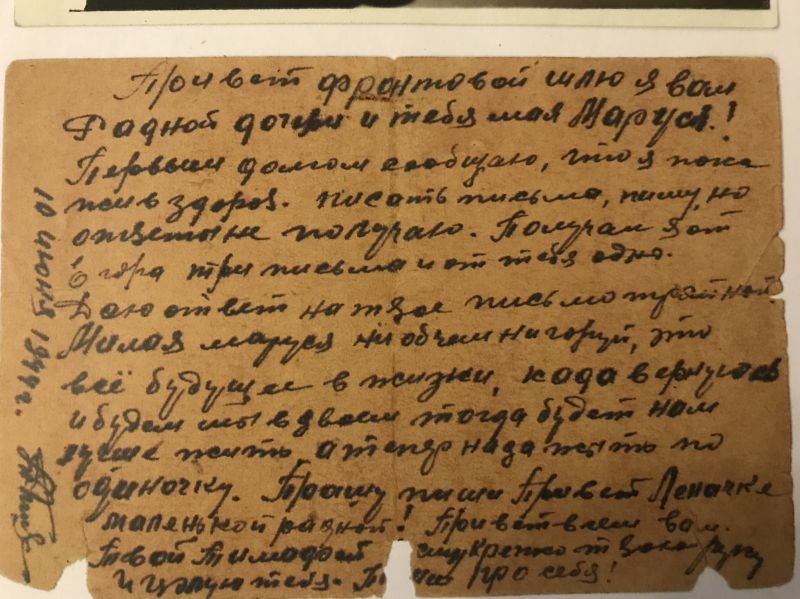 Привет фронтовой шлю я вам
Радной дочери и тебя мая Маруся!
Первым долгом сообщаю, что я пока
жив здоров. писать письма, пишу, но
ответы не получаю. Получил я от
Егора три письма и от тебя одно.
Даю ответ на твое письмо
Милая маруся ни об чем ни горюй, это
всё будущее в жизни, када вернусь
и будем мы в двоем тогда будет нам
лучше жить, а тепер нада жыть по
одиночку. Прашу пиши Привет Леначке
маленькой разной! Привет всем вам.
Твой Тимофей жму крепко твою руку
И цалую тебя. про себя!
10 июня 1944 г.